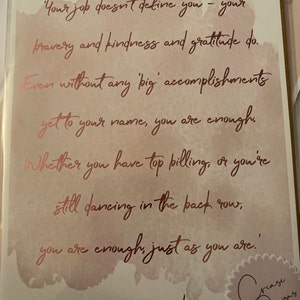 Your job doesn't define you – your
bravery and kindness and gratitude do.
Even without any 'big' accomplishments
yet to your name, you are enough.
Whether you have top billing, or you're
still dancing in the back row,
you are enough, just as you are.'